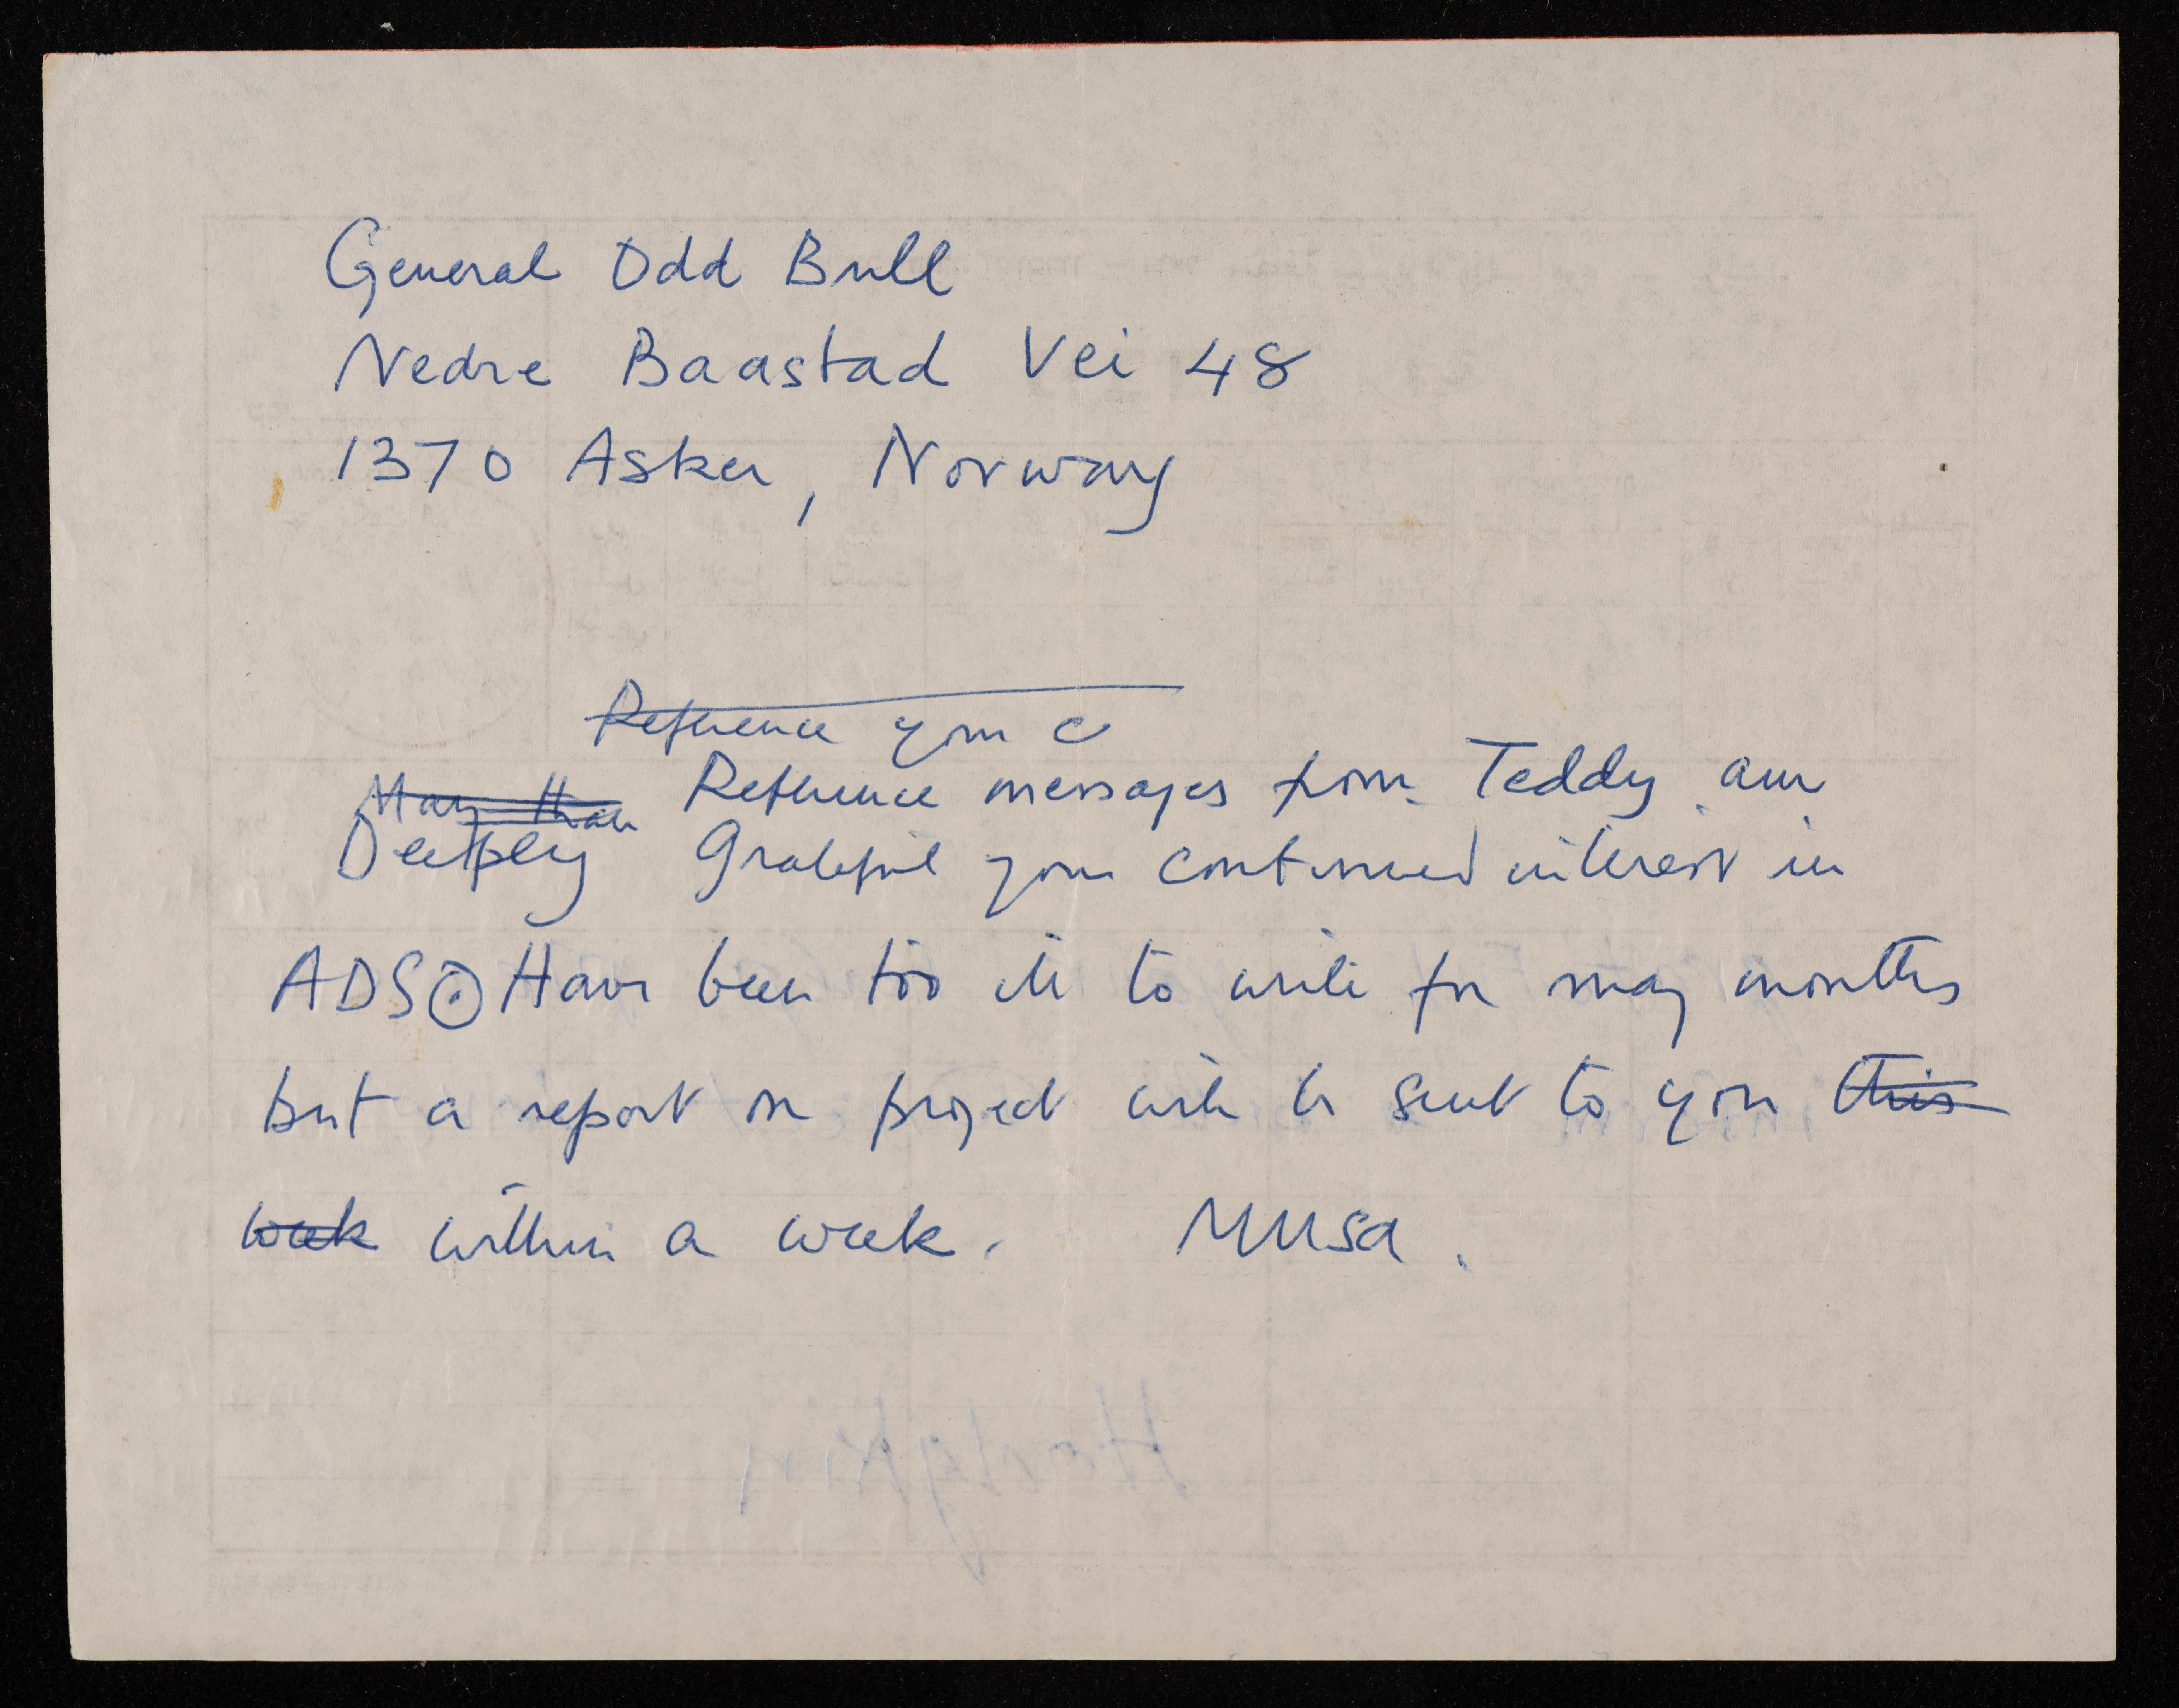 General Odd Bull
Nedre Baastad Vei 48
1370 Asker, Norway
Reference your c
Many than Reference messages from Teddy am
Deeply Grateful your continued interest in
ADS. Have been too ill to write for many months
but a report on project will be sent to you this
week within a week. MUSA.
Hodgkin